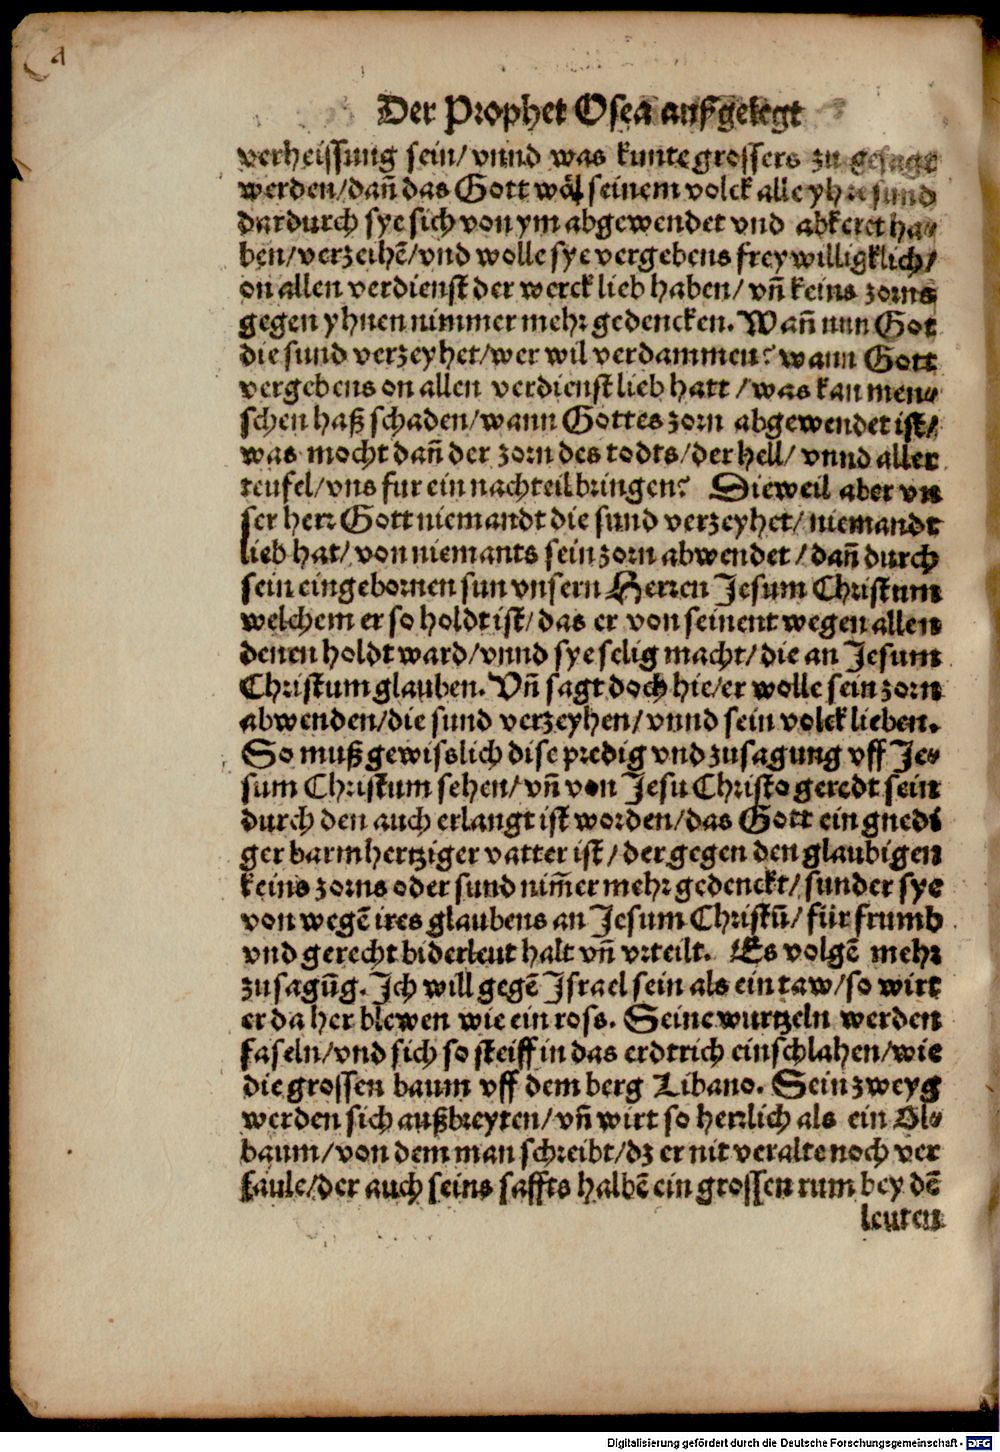 Der Prophet Osea auſzgelegt
verheiſſung ſein/ vnnd was kunte groſſers zu geſagt
werden/ dañ das Gott wöl ſeinem volck alle yhre ſund
dardurch ſye ſich von ym abgewendet vnd abkeret ha-
ben/ verzeihẽ/ vnd wolle ſye vergebens frey willigklich/
on allen verdienſt der werck lieb haben/ vñ keins zorns
gegen yhnen nimmer mehr gedencken. Wañ nun Got
die ſund verzeyhet/ wer wil verdammen? wann Gott
vergebens on allen verdienſt lieb hatt/ was kan men-
ſchen haß ſchaden/ wann Gottes zorn abgewendet iſt/
was mocht dañ der zorn des todts/ der hell/ vnnd aller
teufel/ vns fur ein nachteil bringen? Dieweil aber vn
ſer herr Gott niemandt die ſund verzeyhet/ niemandt
lieb hat/ von niemants ſein zorn abwendet/ dañ durch
ſein eingebornen ſun vnſern Herren Jeſum Chriſtum
welchem er ſo holdt iſt/ das er von ſeinent wegen allen
denen holdt ward/ vnnd ſye ſelig macht/ die an Jeſum
Chriſtum glauben. Vñ ſagt doch hie/ er wolle ſein zorn
abwenden/ die ſund verzeyhen/ vnnd ſein volck lieben.
So muß gewiſslich diſe predig vnd zuſagung vff Je-
ſum Chriſtum ſehen/ vñ von Jeſu Chriſto geredt ſein
durch den auch erlangt iſt worden/ das Gott ein gnedi
ger barmhertziger vatter iſt/ der gegen den glaubigen
keins zorns oder ſund nim̃er mehr gedenckt/ ſunder ſye
von wegẽ ires glaubens an Jeſum Chriſtũ/ für frumb
vnd gerecht biderleut halt vñ vrteilt. Es volgẽ mehr
zuſagũg. Ich will gegẽ Iſrael ſein als ein taw/ ſo wirt
er da her blewen wie ein roſs. Seine wurtzeln werden
faſeln/ vnd ſich ſo ſteiff in das erdtrich einſchlahen/ wie
die groſſen baum vff dem berg Libano. Sein zweyg
werden ſich außbreyten/ vñ wirt ſo herrlich als ein Ol-
baum/ von dem man ſchreibt/ dz er nit veralte noch ver
faule/ der auch ſeins ſaffts halbẽ ein groſſen rum bey dẽ
leuten
Digitalisierung gefördert durch die Deutsche Forschungsgemeinschaft - DFG